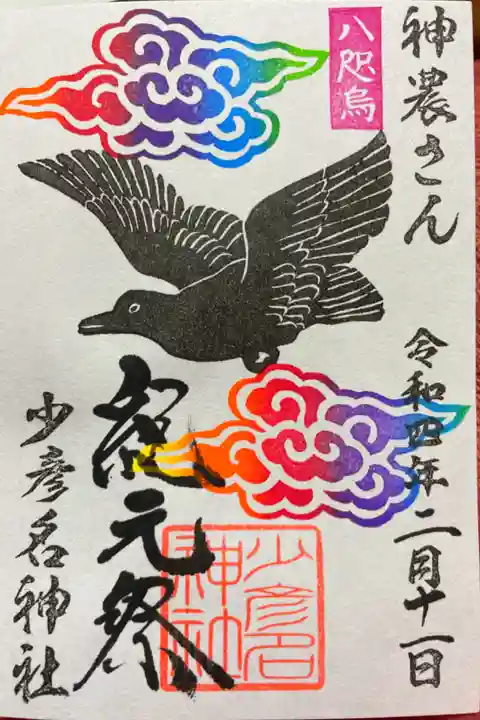 神農さん
令和四年二月十一日
八咫烏
紀元祭
少彦名神社
少彦名
神社